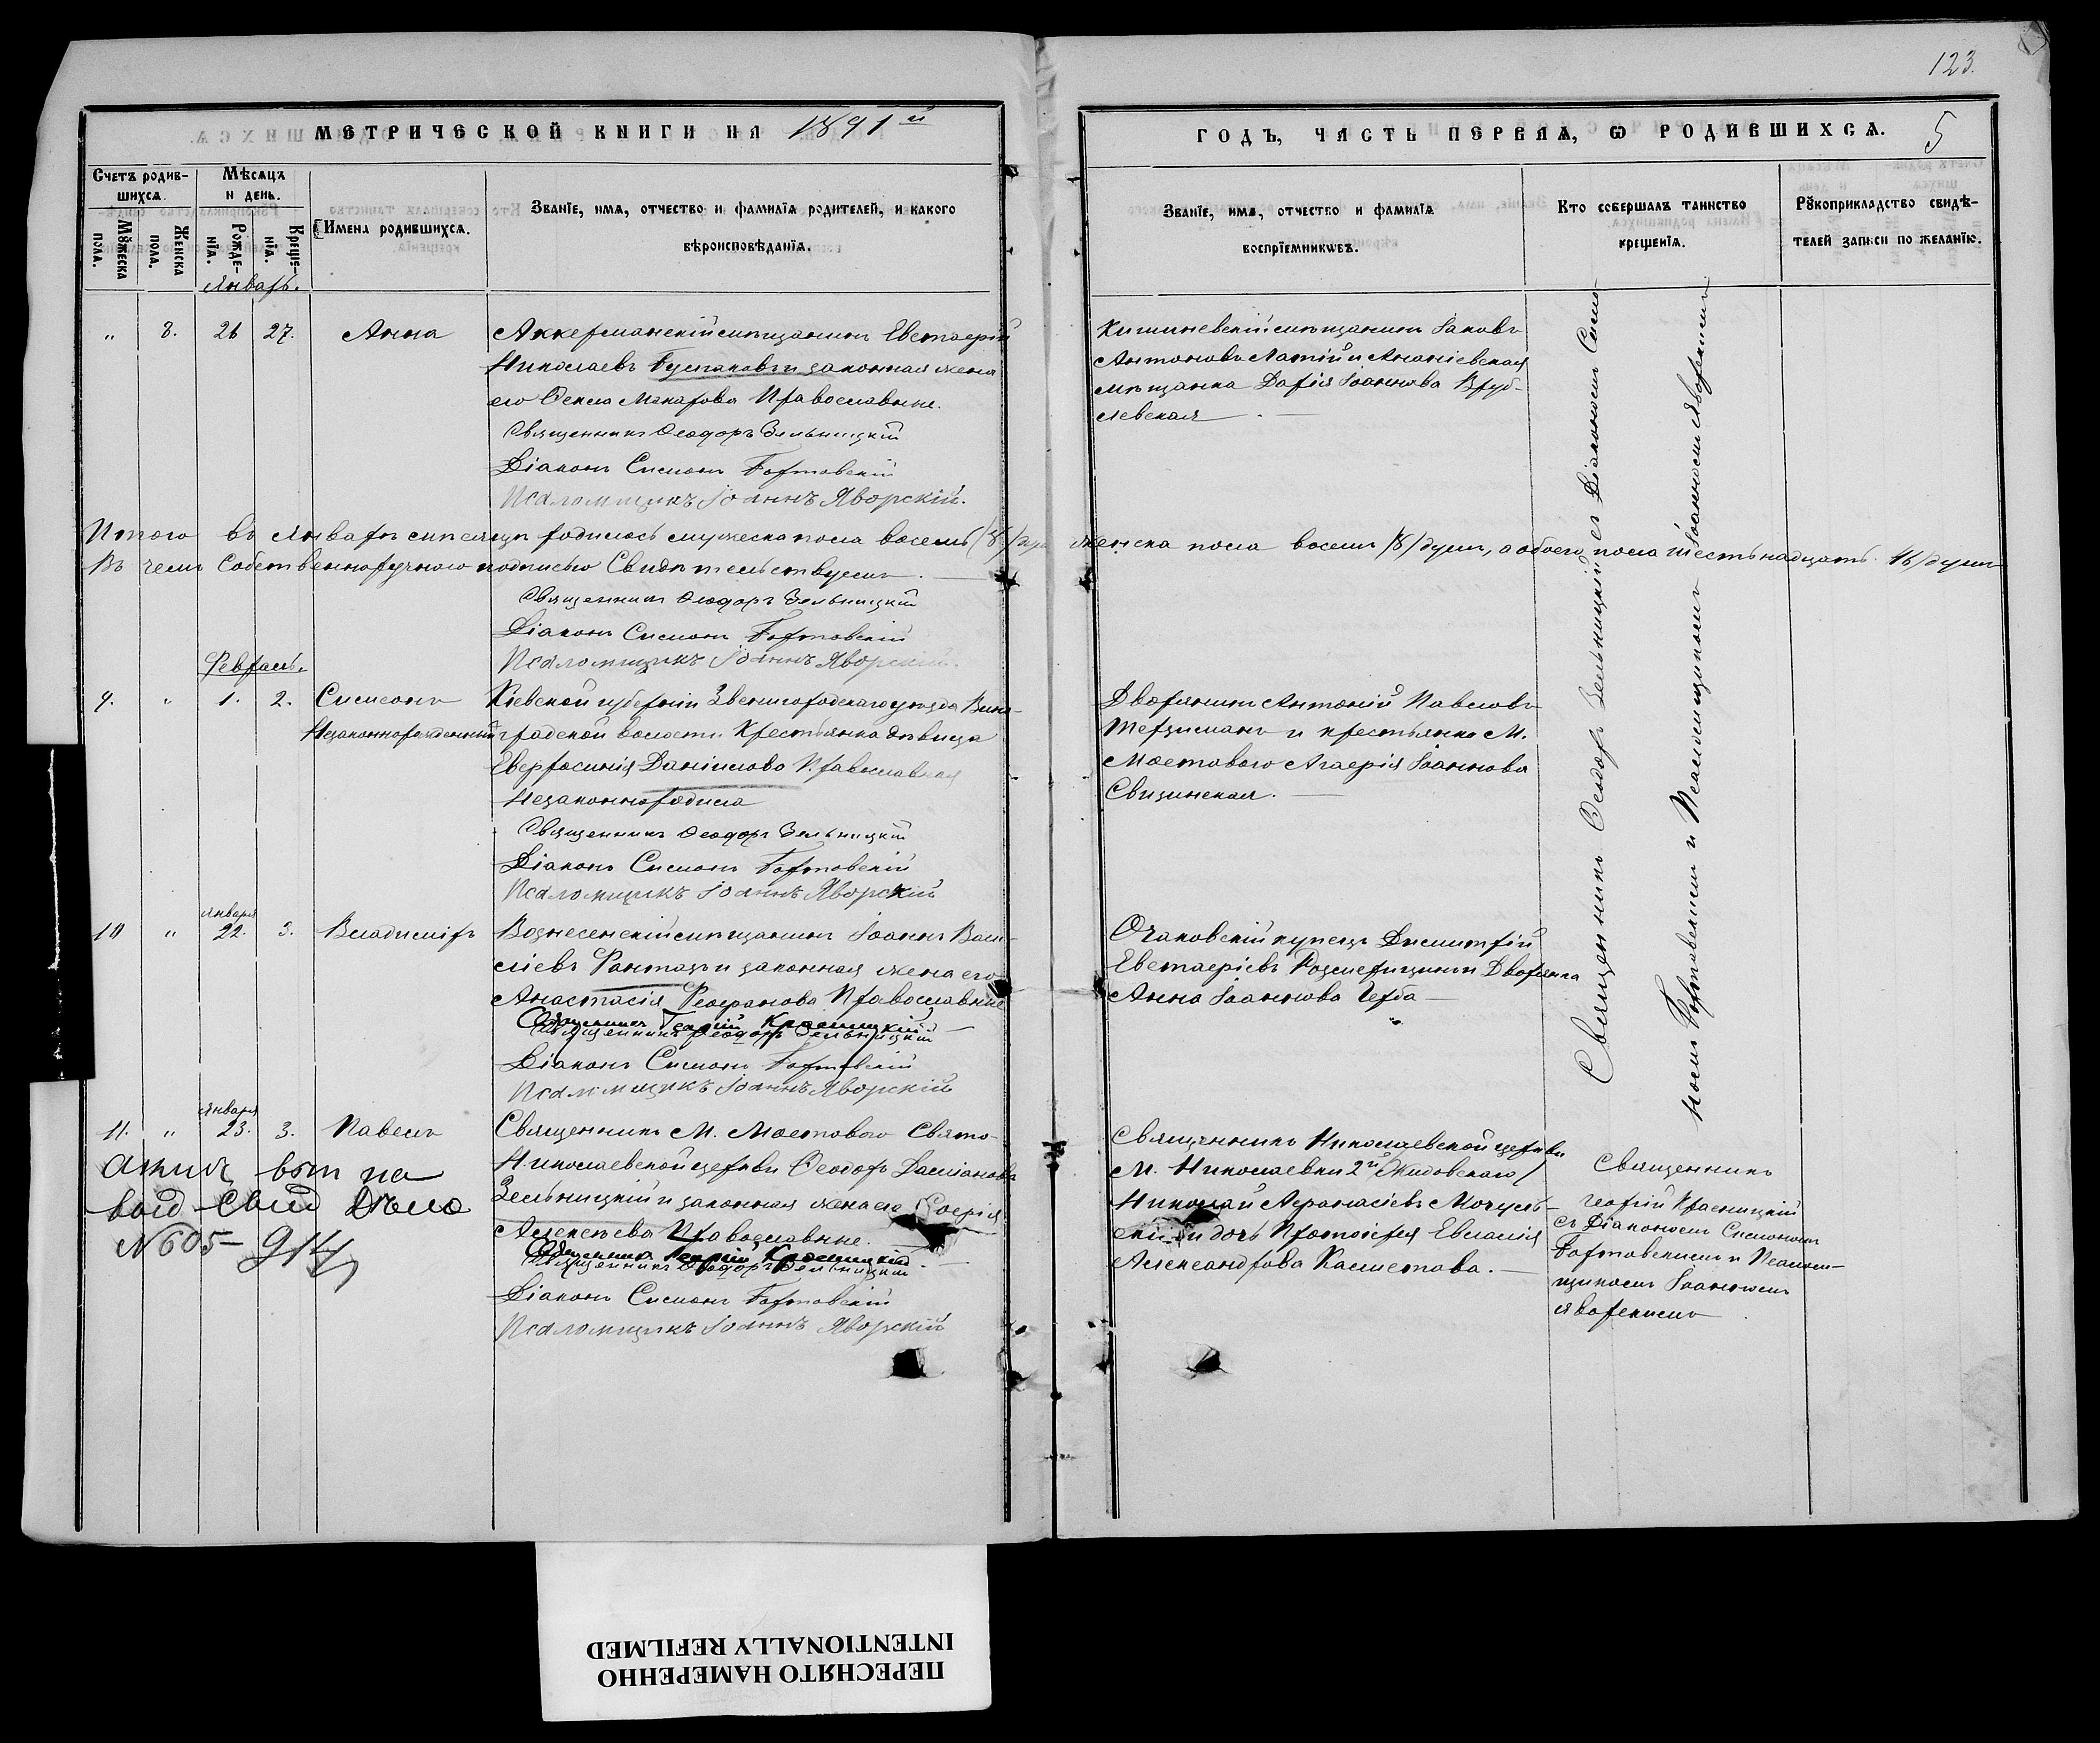 123.
МЕТРИЧЕСКОЙ КНИГИ НА 1891й
ГОДЪ, ЧАСТЬ ПЕРВАЯ, Ѡ РОДИВШИХСѦ. 5
Счетъ родившихсѧ.
Мꙋжеска пола.
Женска пола.
Мѣсѧцъ и день.
Рожденїѧ.
Крещенїѧ.
Имена родившихсѧ.
Званїе, имѧ, отчество и фамилїѧ родителей, и какого
вѣроисповѣданїѧ.
Званїе, имѧ, отчество и фамилїѧ
воспрїемникѡвъ.
Кто совершалъ таинство
крещенїѧ.
Рꙋкоприкладство свидѣ-
телей записи по желанїю.
Январь.
" 8. 26 27. Анна
Аккерманскій мѣщанинъ Евстаѳій
Николаевъ и законная жена
его Макарова Православные.
Священникъ Ѳеодоръ Зельницкій
Діаконъ Симонъ Бортовскій
Псаломщикъ Іоаннъ Яворскій.
Кишиневскій мѣщанинъ Іаковъ
Антоновъ и Ананіевская
мѣщанка Дарія Іоаннова Вруб-
левская
Итого въ Январѣ мѣсяцѣ родилось мужеска пола восемь /8/ женска пола восемь /8/ душъ, а обоего пола шестьнадцать 16/ душъ
Въ чемъ Собственноручною подписью Свидѣтельствуемъ.
Священникъ Ѳеодоръ Зельницкій
Діаконъ Симонъ Бортовскій
Псаломщикъ Іоаннъ Яворскій.
Февраль.
9. " 1. 2. Симеонъ
Незаконнорожденный
Кіевской губерніи Звенигородскаго уѣзда Вино-
градской волости Крестьянка дѣвица
Евфросинія Даніилова Православная
Незаконно родила
Священникъ Ѳеодоръ Зельницкій
Діаконъ Симонъ Бортовскій
Псаломщикъ Іоаннъ Яворскій
Дворянинъ Антоній Павловъ
и крестьянка М.
Мостового Агаѳія Іоаннова
Свидинская.
10 " января 22. 3. Владиміръ
Вознесенскій мѣщанинъ Іоаннъ Васи-
ліевъ и законная жена его
Анастасія Ѳеофанова Православные
Священникъ Георгій Красницкій
Священникъ Ѳеодоръ Зельницкій
Діаконъ Симонъ Бортовскій
Псаломщикъ Іоаннъ Яворскій
Очаковскій купецъ Димитрій
Евстаѳіевъ и Дворянка
Анна Іоаннова
Священникъ Ѳеодоръ Зельницкій съ Діакономъ Симо-
номъ Бортовскимъ и Псаломщикомъ Іоанномъ Яворскимъ
11. " января 23. 3. Павелъ
Священникъ М. Мостового Свято-
Николаевской церкви Ѳеодоръ Даміановъ
Зельницкій и законная жена его Софія
Алексѣева Православные.
Священникъ Георгій Красницкій
Священникъ Ѳеодоръ Зельницкій
Діаконъ Симонъ Бортовскій
Псаломщикъ Іоаннъ Яворскій
дѣло
№ 605 - 914
Священникъ Николаевской церкви
М. Николаевки 2й /Жидовскаго/
Николай Аѳанасіевъ
и дочь Протоіерея Евлалія
Александрова
Священникъ
Георгій Красницкій
съ Діакономъ Симономъ
Бортовскимъ и Псалом-
щикомъ Іоанномъ
Яворскимъ
ПЕРЕСНЯТО НАМЕРЕННО
INTENTIONALLY REFILMED